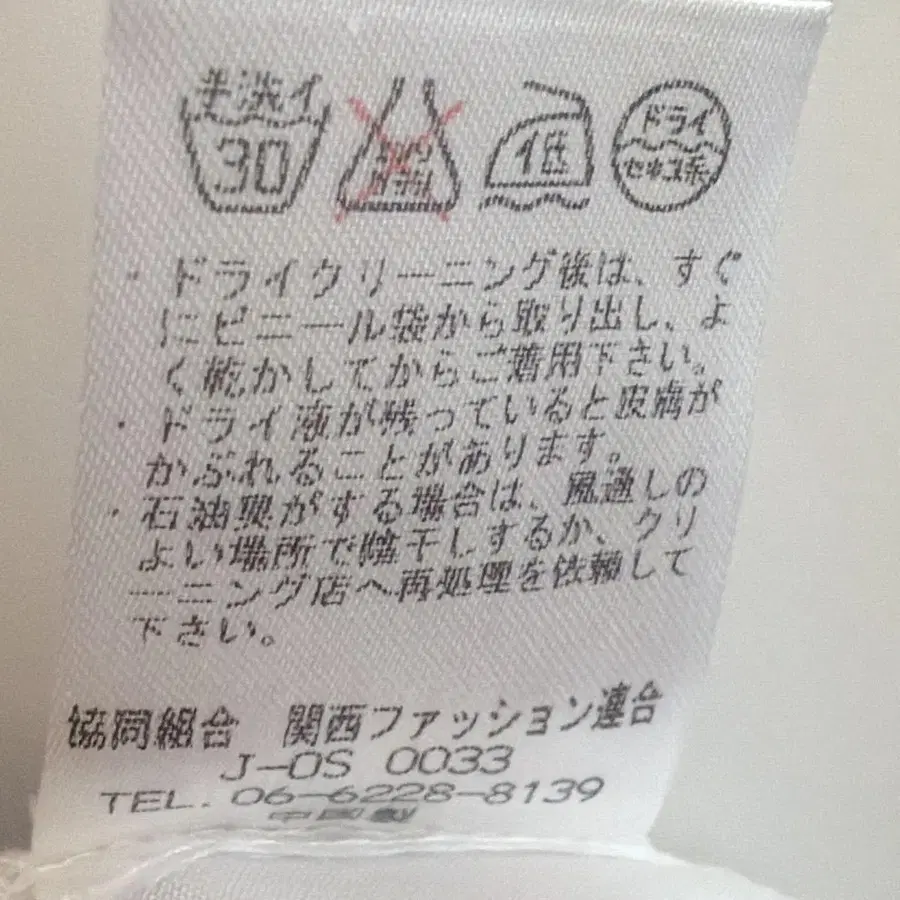 手洗イ
30
低
ドライ
セキユ系
・ドライクリーニング後は、すぐ
にビニール袋から取り出し、よ
く乾かしてからご着用下さい。
・ドライ液が残っていると皮膚が
かぶれることがあります。
・石油臭がする場合は、風通しの
よい場所で陰干しするか、クリ
ーニング店へ再処理を依頼して
下さい。
協同組合 関西ファッション連合
J-OS 0033
TEL. 06-6228-8139
中国製